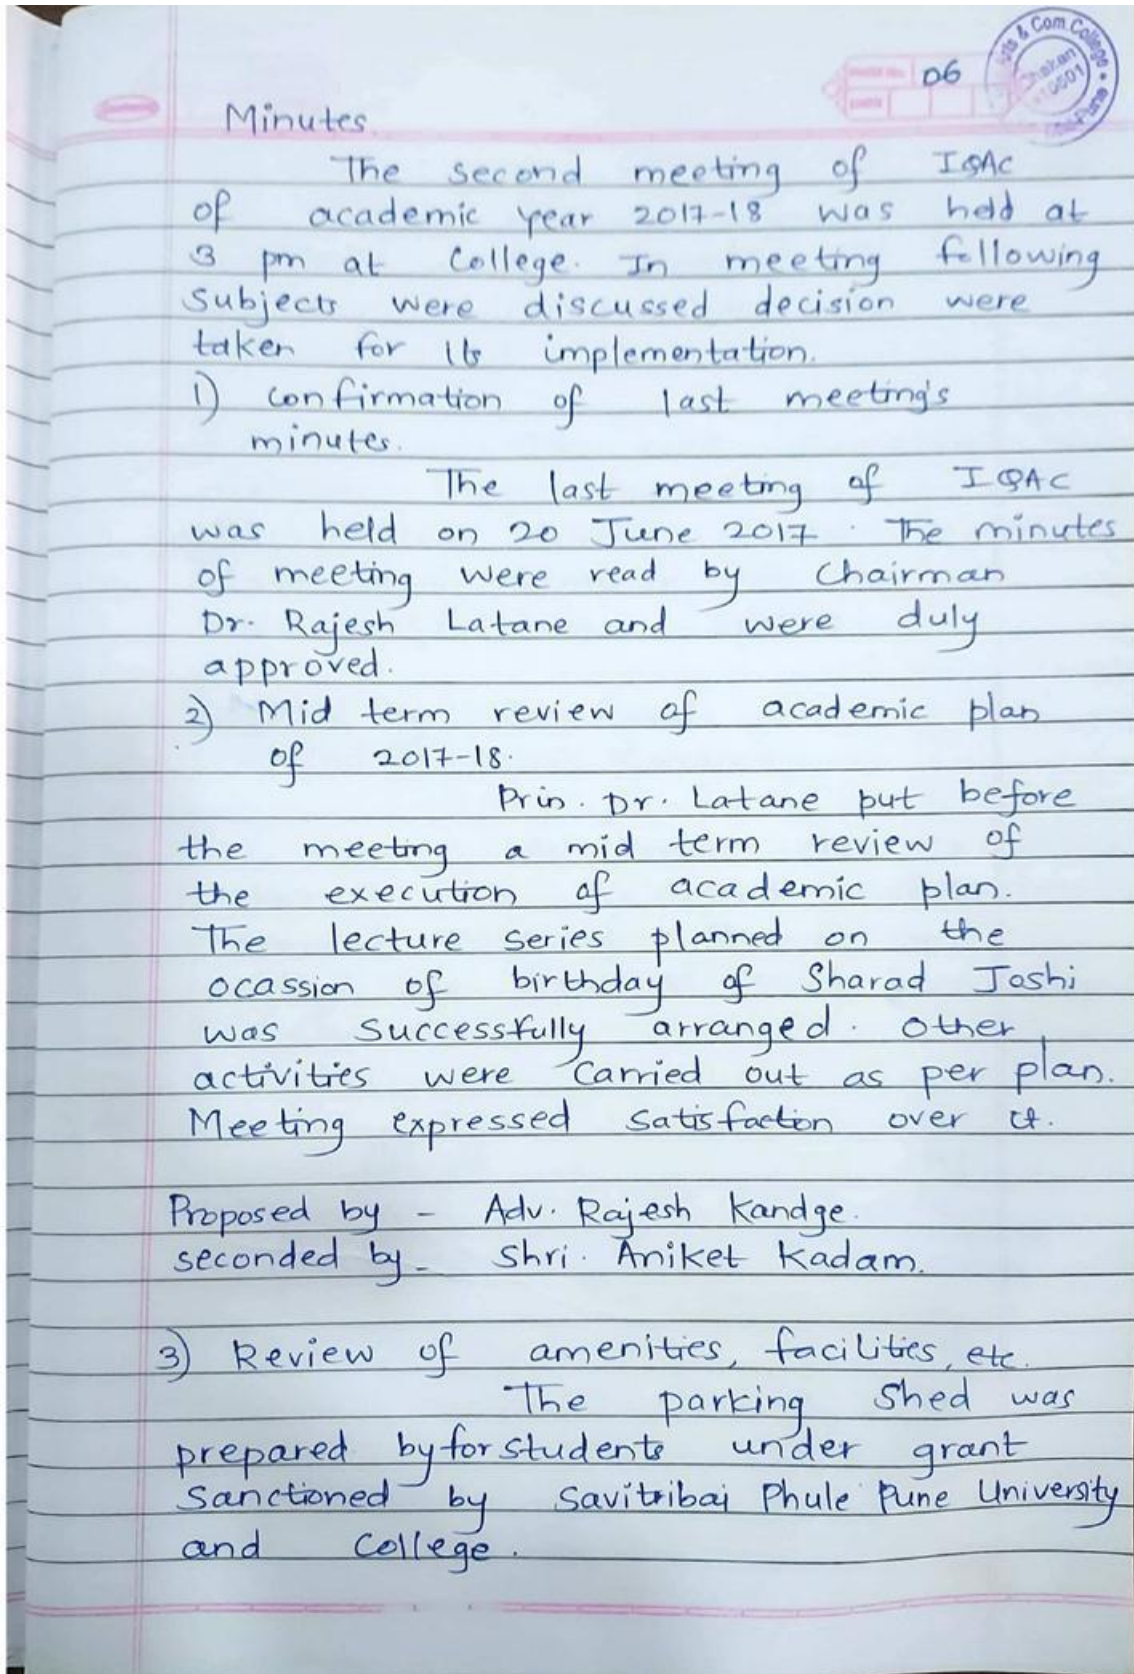 06
Arts & Com. College
Chakan
Pune
Minutes.
The second meeting of IQAC
of academic year 2017-18 was held at
3 pm at College. In meeting following
Subjects were discussed decision were
taken for its implementation.
1) confirmation of last meeting's
minutes.
The last meeting of IQAC
was held on 20 June 2017. The minutes
of meeting were read by Chairman
Dr. Rajesh Latane and were duly
approved.
2) Mid term review of academic plan
of 2017-18.
Prin. Dr. Latane put before
the meeting a mid term review of
the execution of academic plan.
The lecture series planned on the
ocassion of birthday of Sharad Joshi
was successfully arranged. Other
activities were carried out as per plan.
Meeting expressed satisfaction over it.
Proposed by - Adv. Rajesh Kandge.
seconded by - Shri. Aniket Kadam.
3) Review of amenities, facilities, etc.
The parking shed was
prepared by for students under grant
Sanctioned by Savitribai Phule Pune University
and College.